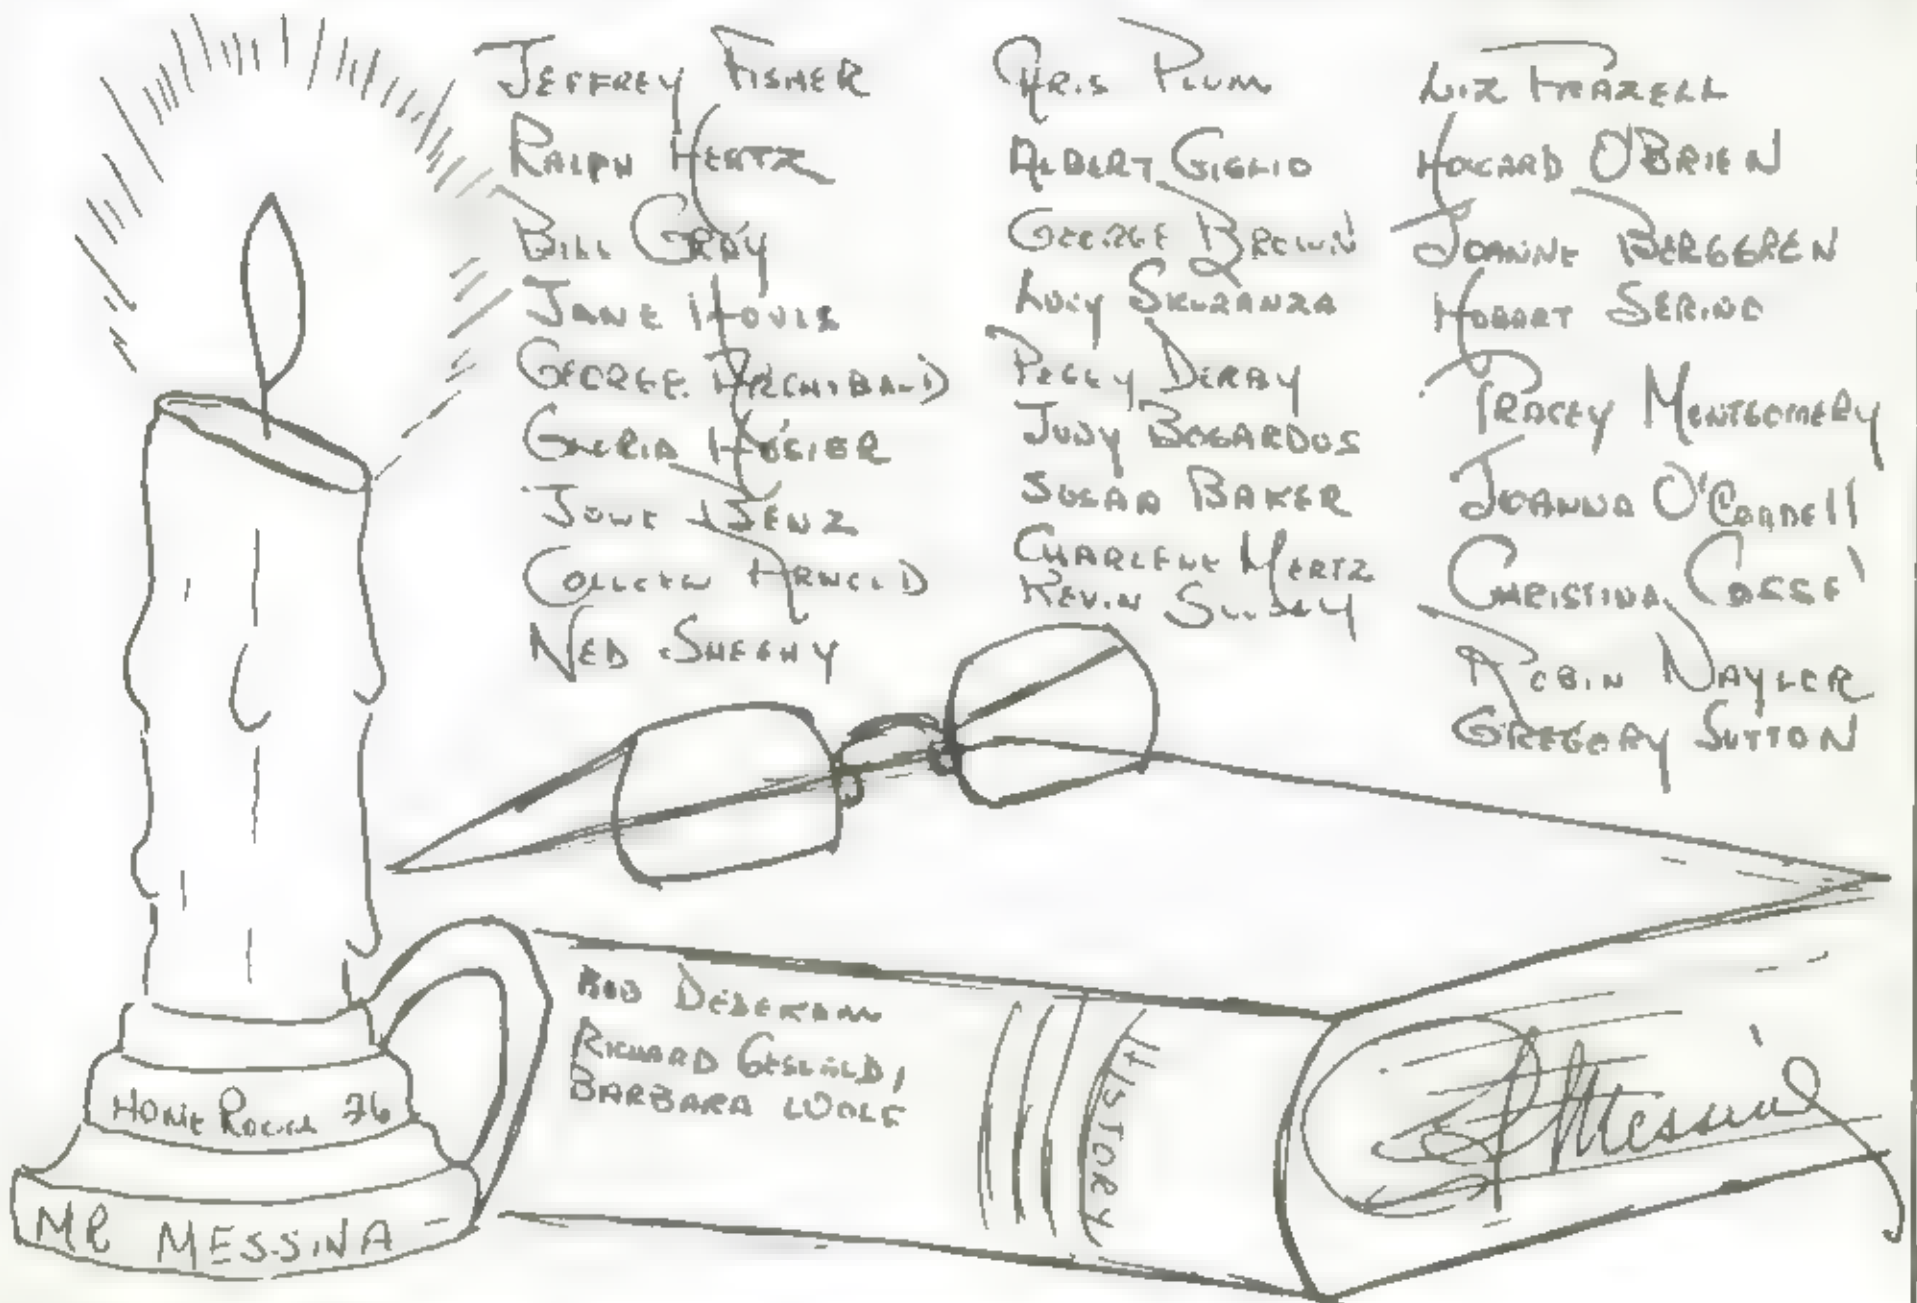 JEFFREY FISHER
RALPH HERTZ
BILL GRAY
JANE HOVIS
GEORGE ARCHIBALD
GLORIA HOSIER
BENZ
COLLEEN ARNOLD
NED SHEEHY
CHRIS PLUM
ALBERT GIGLIO
GEORGE BROWN
LUCY
PEGGY DERBY
JUDY BOGARDUS
SUSAN BAKER
CHARLENE MERTZ
KEVIN
LIZ FRAZELL
HOWARD O'BRIEN
JOANNE BERGGREN
HOBART SERINO
TRACEY MONTGOMERY
JOANNA O'CONNELL
CHRISTINA COSSE'
ROBIN NAYLOR
GREGORY SUTTON
BOB
RICHARD GESUALDI
BARBARA WOLF
HISTORY
Messina
HOME ROOM 26
MR MESSINA